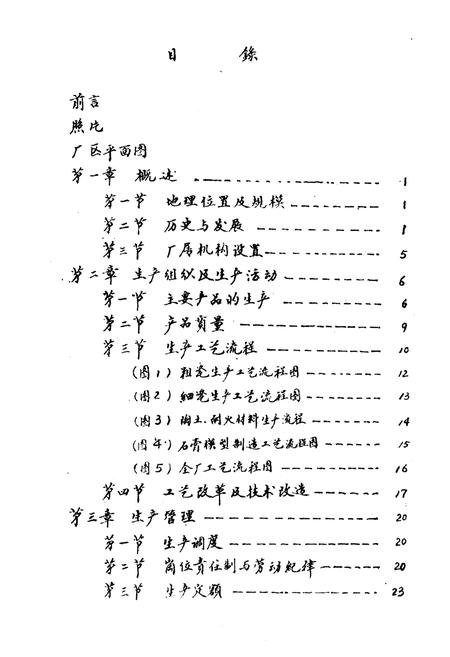 目 錄
前言
照片
厂区平面图
第一章 概述 ------------ 1
第一节 地理位置及规模 --------- 1
第二节 历史与发展 ------------ 1
第三节 厂属机构设置 ---------- 5
第二章 生产组织及生产活动 --------- 6
第一节 主要产品的生产 ---------- 6
第二节 产品质量 ------------- 9
第三节 生产工艺流程 ----------- 10
(图1) 粗瓷生产工艺流程图 ------ 12
(图2) 细瓷生产工艺流程图 ------ 13
(图3) 陶土、耐火材料生产流程 ------ 14
(图4) 石膏模型制造工艺流程图 ----- 15
(图5) 全厂工艺流程图 -------- 16
第四节 工艺改革及技术改造 ------- 17
第三章 生产管理 --------------- 20
第一节 生产调度 ------------- 20
第二节 岗位责任制与劳动纪律 ------ 20
第三节 生产定额 ------------- 23